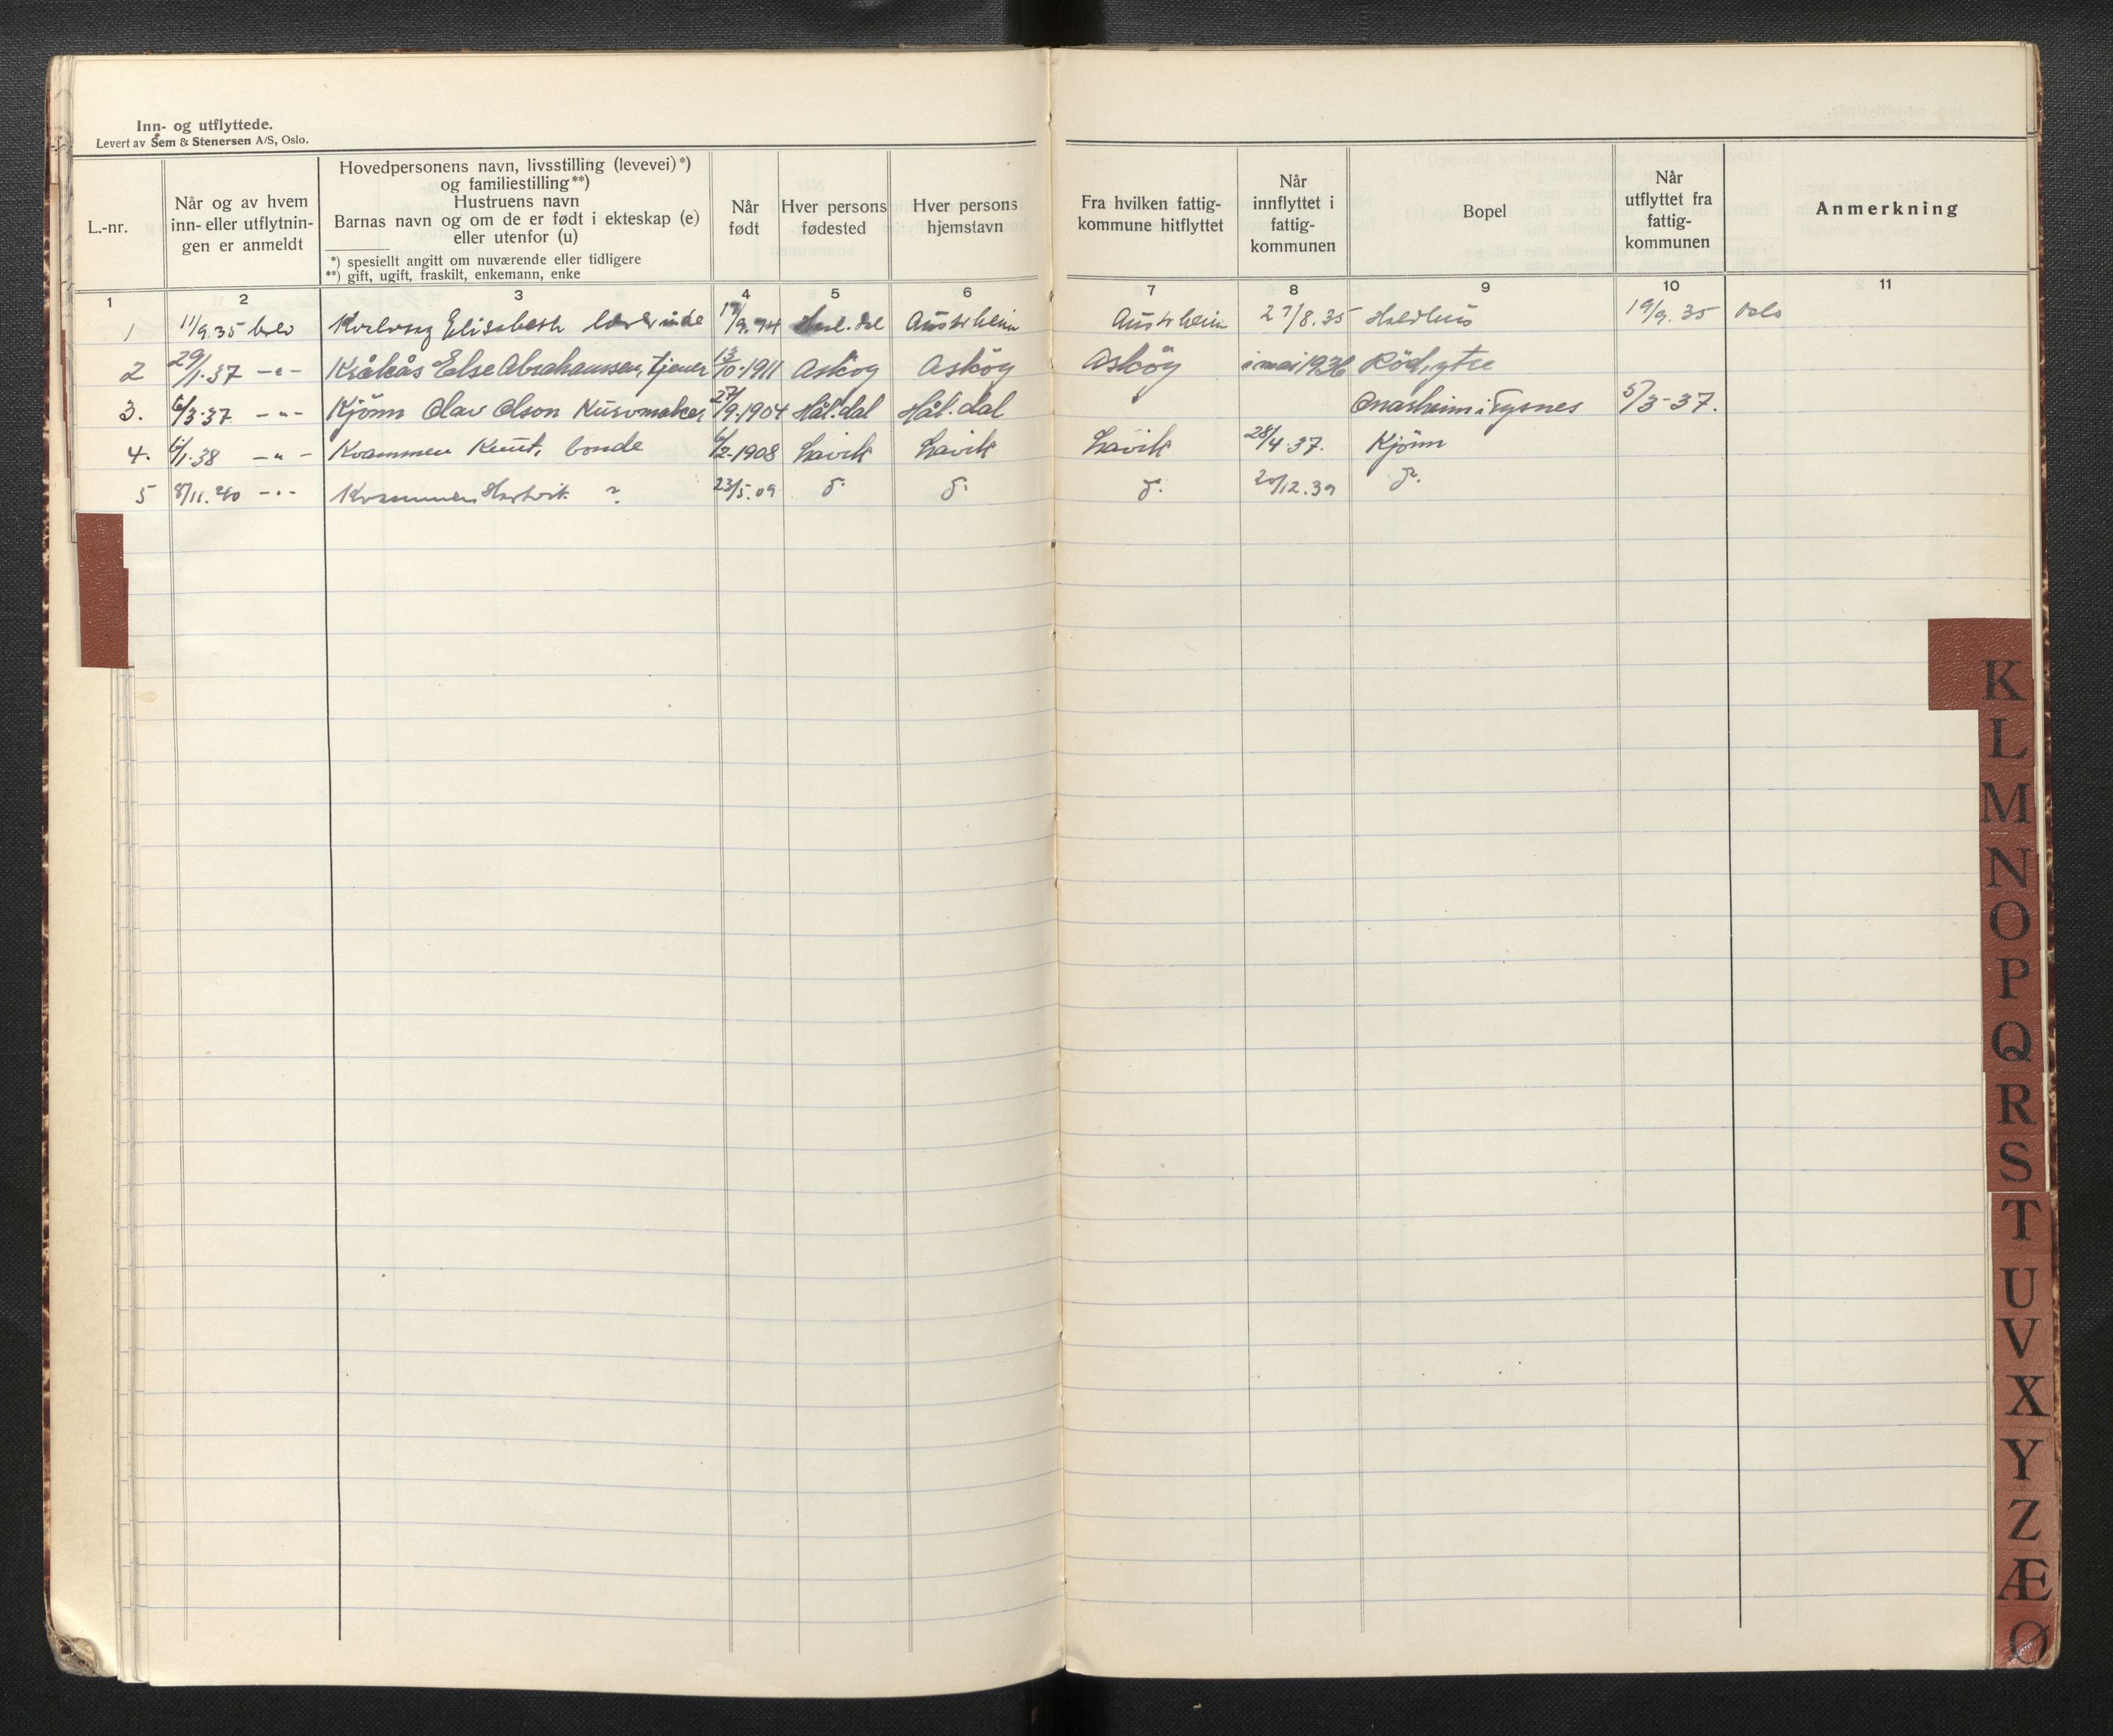 Inn- og utflyttede.
Levert av Sem & Stenersen A/S, Oslo.
L.-nr.
Når og av hvem
inn- eller utflytnin-
gen er anmeldt
Hovedpersonens navn, livsstilling (levevei)*)
og familiestilling**)
Hustruens navn
Barnas navn og om de er født i ekteskap (e)
eller utenfor (u)
*) spesielt angitt om nuværende eller tidligere
**) gift, ugift, fraskilt, enkemann, enke
Når
født
Hver persons
fødested
Hver persons
hjemstavn
Fra hvilken fattig-
kommune hitflyttet
Når
innflyttet i
fattig-
kommunen
Bopel
Når
utflyttet fra
fattig-
kommunen
Anmerkning
1 2 3 4 5 6 7 8 9 10 11
1 11/9.35 brev Elisabeth lærerinde Austrheim Austrheim 27/8.35 19/9.35 Oslo
2 29/1.37 -"- Kråkås Else Abrahamsen, tjener 13/10.1911 Askøy Askøy Askøy i mai 1936 Röd, ytre
3. 6/3.37 -"- Kjönn Olav Olson Kurvmaker, 27/9.1904 Hål.dal Hål.dal Onarheim i Tysnes 5/3-37.
4. 6/1.38 -"- Kvammen Knut, bonde 6/2-1908 Lavik Lavik Lavik 28/4.37. Kjönn
5 8/11.40 -"- Kvammen ? 23/5.09 20/12.39
K
L
M
N
O
P
Q
R
S
T
U
V
X
Y
Z
Æ
Ø